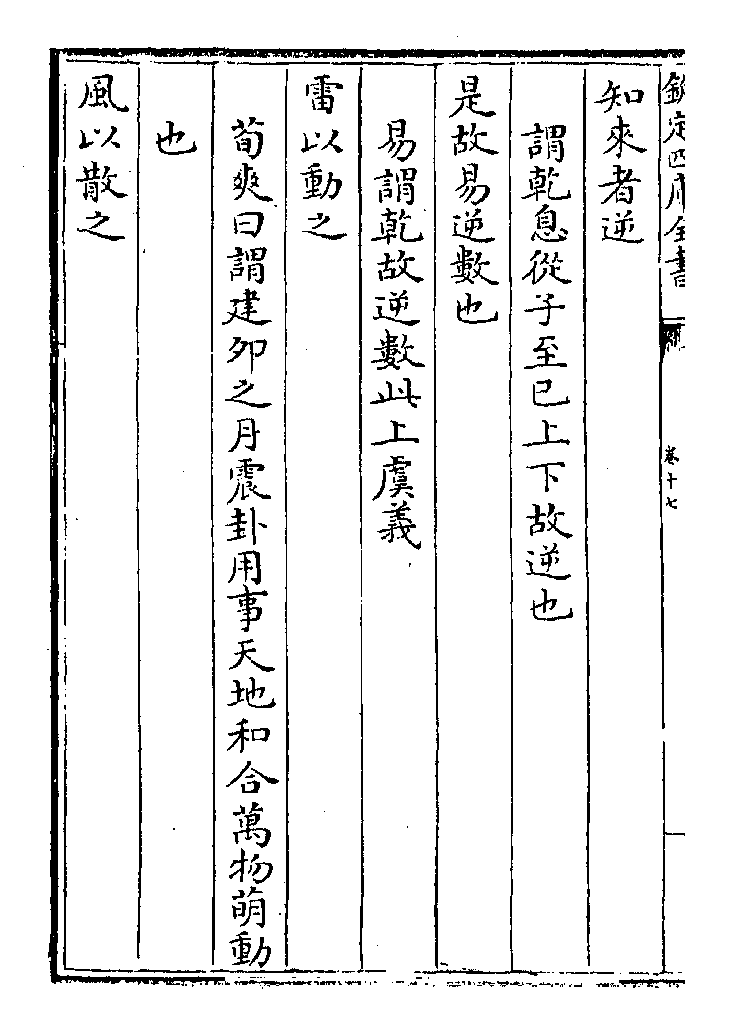 欽定四庫全書
卷十七
知來者逆
謂乾息從子至巳上下故逆也
是故易逆數也
易謂乾故逆數此上虞義
雷以動之
荀爽曰謂建卯之月震卦用事天地和合萬物萌動
也
風以散之